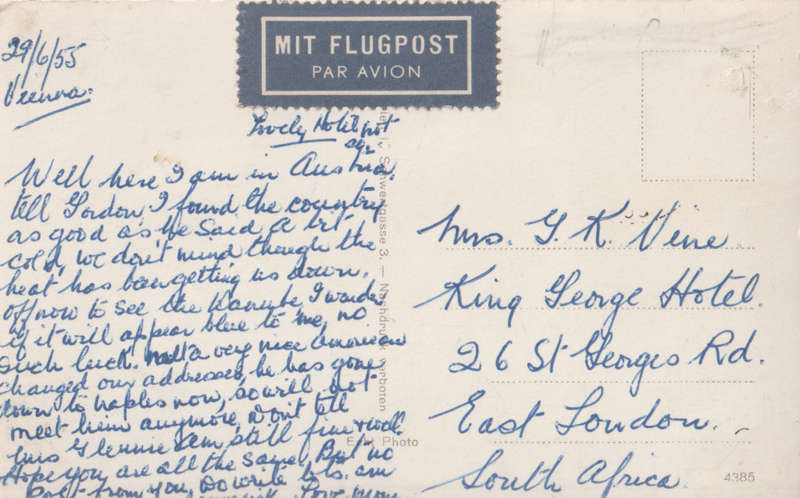 29/6/55
Vienna.
MIT FLUGPOST
PAR AVION
Lovely Hotel
Well here I am in Austria.
tell Gordon I found the country
as good as he said. A bit
cold, we don't mind though the
heat has been getting us down.
off now to see the Danube, I wonder
if it will appear blue to me, no
such luck. Met a very nice American
changed our addresses, he has gone
down to Naples now, so will not
meet him anymore, won't tell
Mrs Glennie I am still fine & well
Hope you are all the same. But no
Post from you, so write lots. am
Love Mom
Mrs. G. K. Vine
King George Hotel.
26 St Georges Rd.
East London.
South Africa.
Schwenkgasse 3. — Nachdruck verboten
Echt Photo
4385